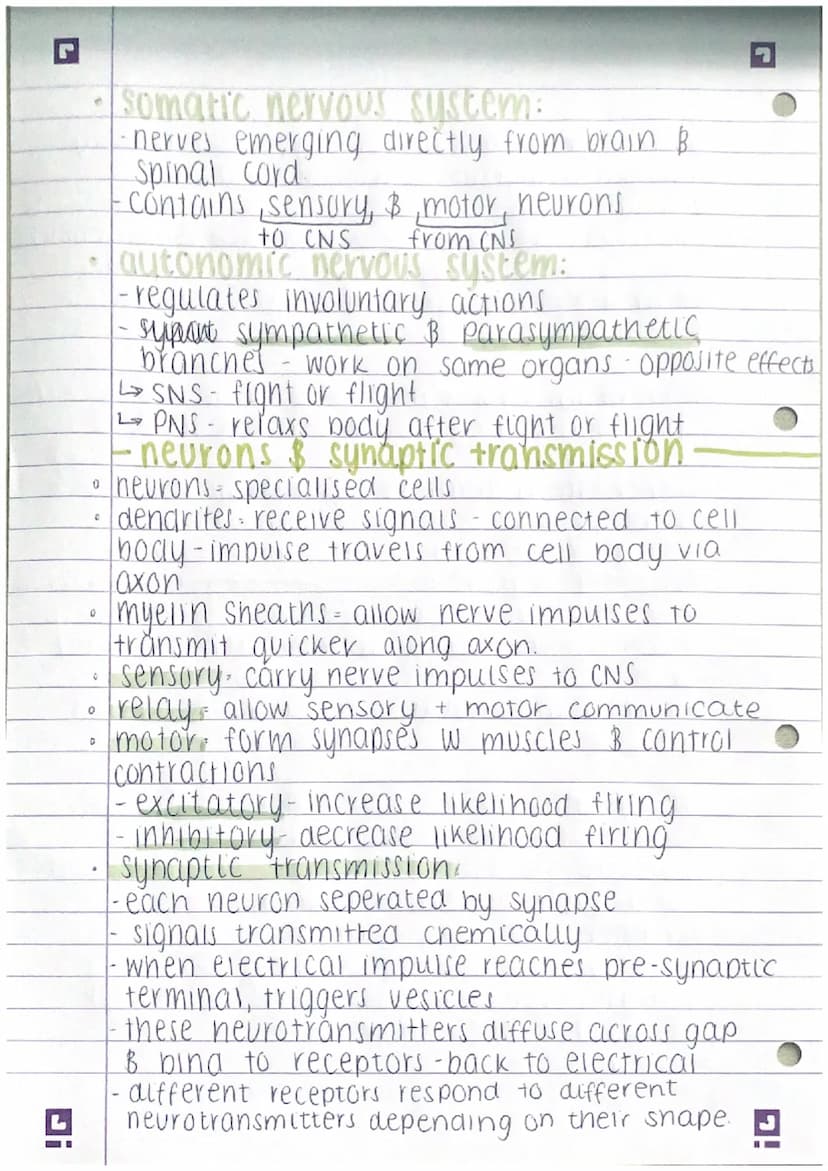 • somatic nervous system:
- nerves emerging directly from brain &
spinal cord
- contains sensory & motor neurons
to CNS from CNS
• autonomic nervous system:
- regulates involuntary actions
- sympathetic & parasympathetic
branches - work on same organs - opposite effects
↳ SNS - fight or flight
↳ PNS - relaxs body after fight or flight
- neurons & synaptic transmission -
• neurons = specialised cells
• dendrites = receive signals - connected to cell
body - impulse travels from cell body via
axon
• myelin sheaths = allow nerve impulses to
transmit quicker along axon.
• sensory = carry nerve impulses to CNS
• relay = allow sensory + motor communicate
• motor = form synapses w muscles & control
contractions
- excitatory - increase likelihood firing
- inhibitory - decrease likelihood firing
• synaptic transmission:
- each neuron seperated by synapse
- signals transmitted chemically
- when electrical impulse reaches pre-synaptic
terminal, triggers vesicles
- these neurotransmitters diffuse across gap
& bind to receptors - back to electrical
- different receptors respond to different
neurotransmitters depending on their shape.